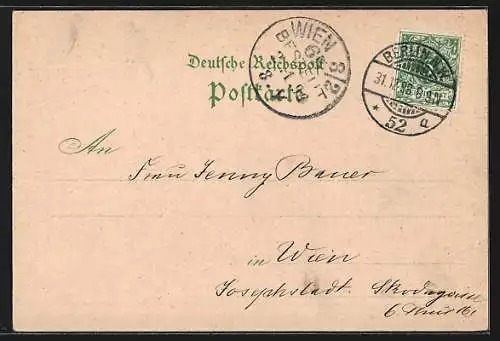 Deutsche Reichspost
Postkarte
WIEN 8/2
BERLIN
31.12.
* 52 a
An
Frau Jenny Bauer
in Wien
Josephstadt. Skodagasse
6 Thür 16